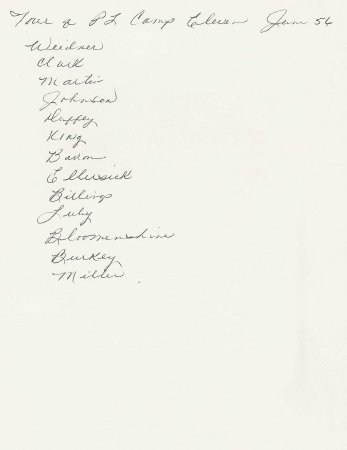 Tour of PL Camp Eleven June 56
Weidner
Clark
Martin
Johnson
Duffey
King
Baron
Ellersick
Billings
Luby
Bloomenshine
Burkey
Miller